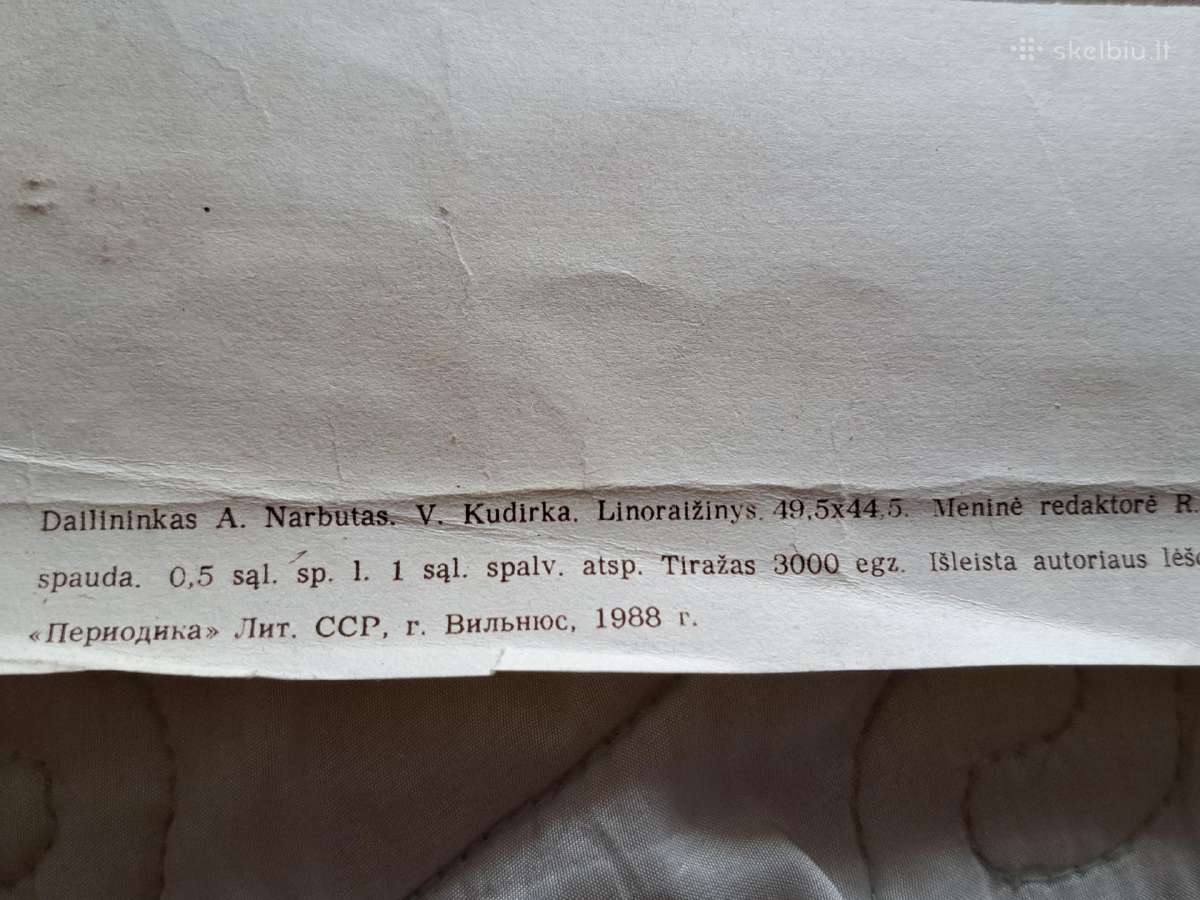 skelbiu.lt
Dailininkas A. Narbutas. V. Kudirka. Linoraižinys. 49,5x44,5. Meninė redaktorė R.
spauda. 0,5 sąl. sp. l. 1 sąl. spalv. atsp. Tiražas 3000 egz. Išleista autoriaus
«Периодика» Лит. ССР, г. Вильнюс, 1988 г.